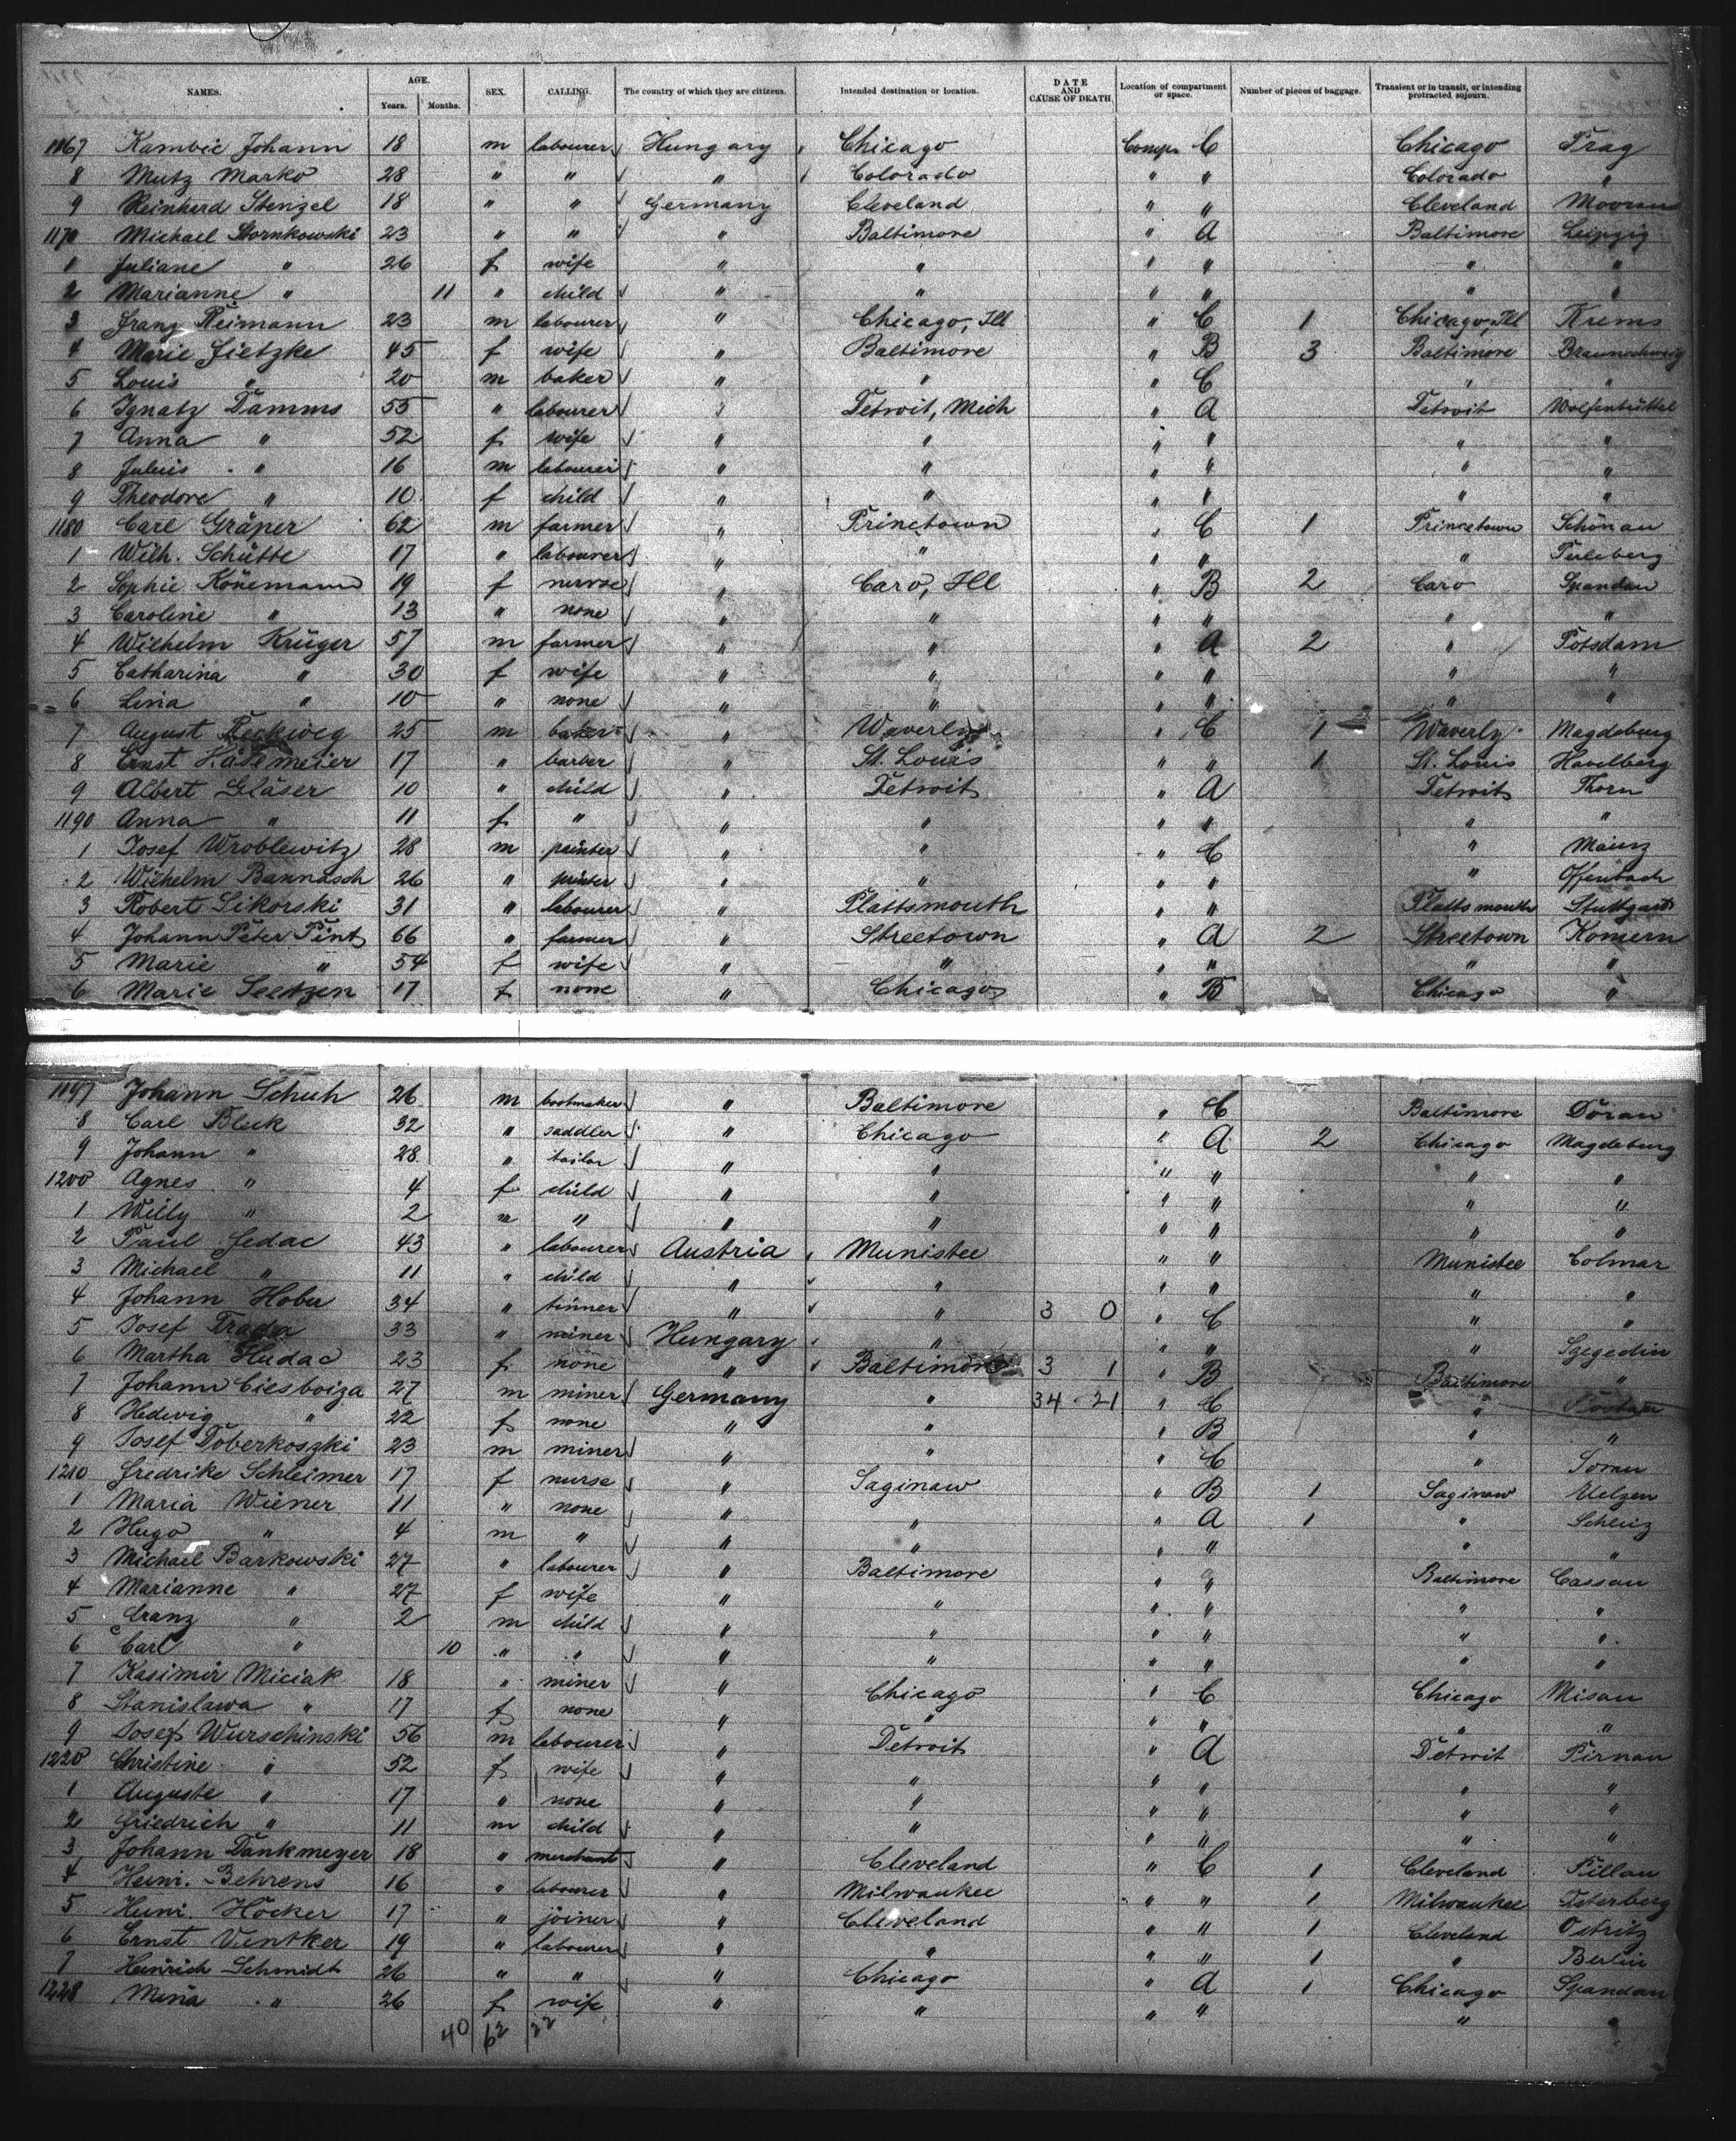 NAMES. AGE. Years. Months. SEX. CALLING. The country of which they are citizens. Intended destination or location. DATE AND CAUSE OF DEATH. Location of compartment or space. Number of pieces of baggage. Transient or in transit, or intending protracted sojourn.
1167 Kambic Johann 18 m labourer Hungary Chicago Comp. C Chicago Prag
8 Mutz Marko 28 " " " Colorado " " Colorado "
9 Reinhard Stenzel 18 " " Germany Cleveland " " Cleveland
1170 Michael Stornkowski 23 " " " Baltimore " A Baltimore Leipzig
1 Juliane " 26 f wife " " " " " "
2 Marianne " 11 " child " " " " " "
3 Franz Reimann 23 m labourer " Chicago, Ill " C 1 Chicago, Ill Krems
4 Marie Zietzke 45 f wife " Baltimore " B 3 Baltimore Braunschweig
5 Louis " 20 m baker " " " C " "
6 Ignatz Damms 55 " labourer " Detroit, Mich " A Detroit Wolfenbüttel
7 Anna " 52 f wife " " " " " "
8 Julius " 16 m labourer " " " " " "
9 Theodore " 10 f child " " " " " "
1180 Carl Gräper 62 m farmer " Princtown " C 1 Princetown Schönau
1 Wilh. Schütte 17 " labourer " " " " " Perleberg
2 Sophie Könemann 19 f nurse " Caro, Ill " B 2 Caro Spandau
3 Caroline " 13 " none " " " " " "
4 Wilhelm Krüger 57 m farmer " " " A 2 " Potsdam
5 Catharina " 30 f wife " " " " " "
6 Lina " 10 " none " " " " " "
7 August Reckweg 25 m baker " Waverly " C 1 Waverly Magdeburg
8 Ernst 17 " barber " St. Louis " " 1 St. Louis Havelberg
9 Albert Gläser 10 " child " Detroit " A Detroit Thorn
1190 Anna " 11 f " " " " " " "
1 Josef Wroblewitz 28 m painter " " " C " Mainz
2 Wilhelm Bannasch 26 " " " " " " Offenbach
3 Robert Sikorski 31 " labourer " Plattsmouth " " Plattsmouth Stuttgart
4 Johann Peter Pint 66 " farmer " Streetown " A 2 Streetown Komern
5 Marie " 54 f wife " " " " " "
6 Marie Seetzen 17 f none " Chicago " B Chicago "
1197 Johann Schuh 26 m bootmaker " Baltimore " C Baltimore Doran
8 Carl Bleck 32 " saddler " Chicago " A 2 Chicago Magdeburg
9 Johann " 28 " tailor " " " " " "
1200 Agnes " 4 f child " " " " " "
1 Willy " 2 m " " " " " " "
2 Paul Sedac 43 " labourer Austria Munistee " " Munistee Colmar
3 Michael " 11 " child " " " " " "
4 Johann Hober 34 " tinner " " 3 0 " C " "
5 Josef 33 " miner Hungary " " " " Szegedin
6 Martha Hudac 23 f none " Baltimore 3 1 " B Baltimore "
7 Johann Ciesboiza 27 m miner Germany " 34 - 21 " C "
8 Hedwig " 22 f none " " " B " "
9 Josef Doberkoszki 23 m miner " " " C " Soran
1210 Fredrike Schleimer 17 f nurse " Saginaw " B 1 Saginaw Uelzen
1 Maria Wiener 11 " none " " " A 1 " Schleiz
2 Hugo " 4 m " " " " " " "
3 Michael Barkowski 27 " labourer " Baltimore " " Baltimore Cassau
4 Marianne " 27 f wife " " " " " "
5 Franz " 2 m child " " " " " "
6 Carl " 10 " " " " " " " "
7 Kasimir Miciak 18 " miner " Chicago " C Chicago Misau
8 Stanislawa " 17 f none " " " " " "
9 Josef Wurschinski 56 m labourer " Detroit " A Detroit Pirnau
1220 Christine " 52 f wife " " " " " "
1 Auguste " 17 " none " " " " " "
2 Friedrich " 11 m child " " " " " "
3 Johann Dankmeyer 18 " merchant " Cleveland " C 1 Cleveland Pillau
4 Heinr. Behrens 16 " labourer " Milwaukee " " 1 Milwaukee
5 Heinr. Höcker 17 " joiner " Cleveland " " 1 Cleveland Ostritz
6 Ernst Ventker 19 " labourer " " " " 1 " Berlin
7 Heinrich Schmidt 26 " " " Chicago " A 1 Chicago Spandau
1228 Mina " 26 f wife " " " " " "
40 62 22